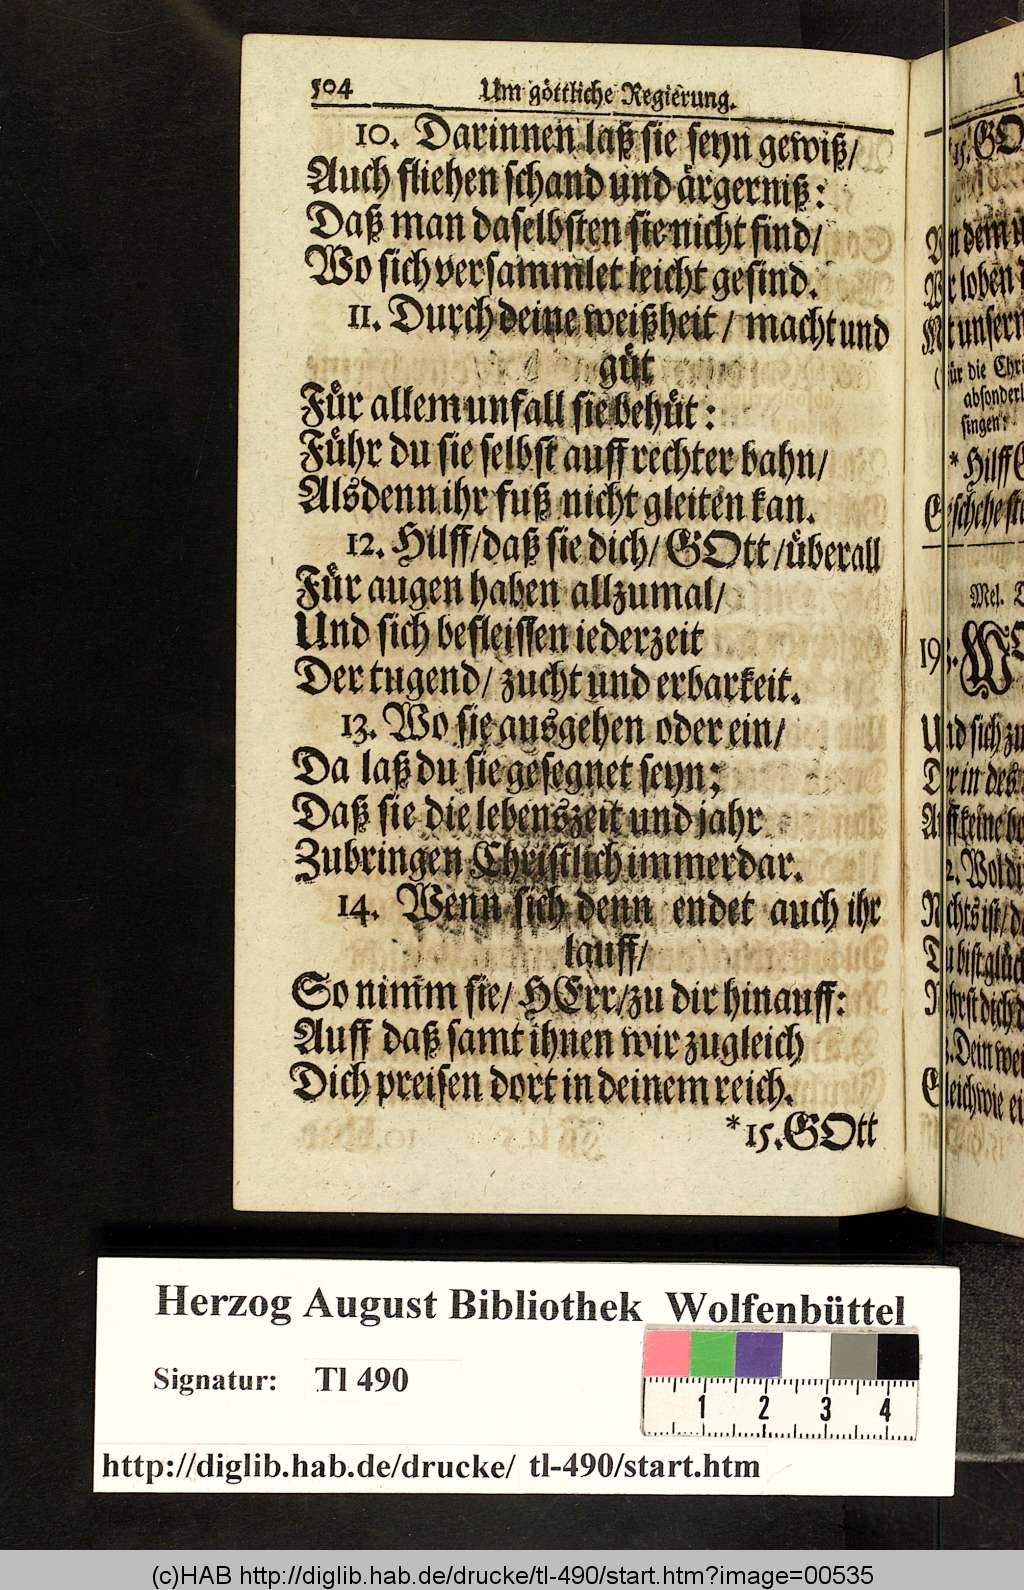 504 Um göttliche Regierung.
10. Darinnen laß sie seyn gewiß/
Auch fliehen schand und ärgerniß:
Daß man daselbsten sie nicht find/
Wo sich versammlet leicht gesind.
11. Durch deine weißheit / macht und
güt
Für allem unfall sie behüt:
Führ du sie selbst auff rechter bahn/
Alsdenn ihr fuß nicht gleiten kan.
12. Hilff/daß sie dich/ GOtt /überall
Für augen haben allzumal/
Und sich befleissen iederzeit
Der tugend/ zucht und erbarkeit.
13. Wo sie ausgehen oder ein/
Da laß du sie gesegnet seyn;
Daß sie die lebenszeit und jahr
Zubringen Christlich immerdar.
14. Wenn sich denn endet auch ihr
lauff/
So nim̃ sie/ HErr/zu dir hinauff:
Auff daß samt ihnen wir zugleich
Dich preisen dort in deinem reich.
*15. GOtt
15. GO
dem
loben
unsern
für die Chri
absonderl
singen:
* Hilff
Geschehe
Mel.
Und sich zu
Der in des
Auff keine
2. Wol di
Nichts ist/
Du bist glück
Dein wei
Gleich wie ei
Herzog August Bibliothek Wolfenbüttel
Signatur: Tl 490
1 2 3 4
http://diglib.hab.de/drucke/ tl-490/start.htm
(c)HAB http://diglib.hab.de/drucke/tl-490/start.htm?image=00535